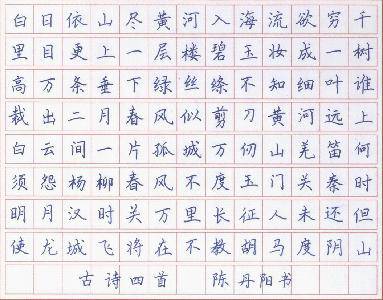 白日依山尽黄河入海流欲穷千
里目更上一层楼碧玉妆成一树
高万条垂下绿丝绦不知细叶谁
裁出二月春风似剪刀黄河远上
白云间一片孤城万仞山羌笛何
须怨杨柳春风不度玉门关秦时
明月汉时关万里长征人未还但
使龙城飞将在不教胡马度阴山
古诗四首 陈丹阳书